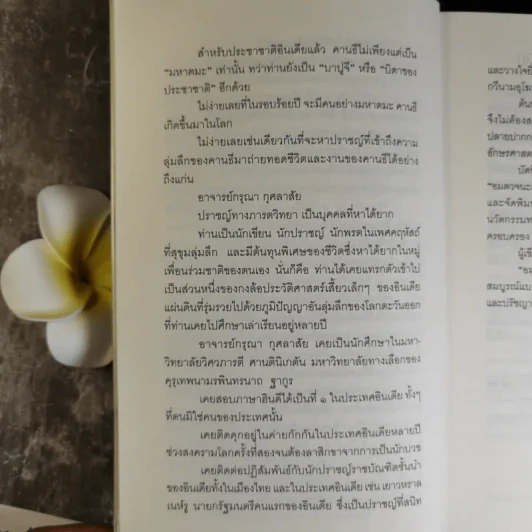 สำหรับประชาชาติอินเดียแล้ว คานธีไม่เพียงแต่เป็น
“มหาตมะ” เท่านั้น ทว่าท่านยังเป็น “บาปูจี” หรือ “บิดาของ
ประชาชาติ” อีกด้วย
ไม่ง่ายเลยที่ในรอบร้อยปี จะมีคนอย่างมหาตมะ คานธี
เกิดขึ้นมาในโลก
ไม่ง่ายเลยเช่นเดียวกันที่จะหาปราชญ์ที่เข้าถึงความ
ลุ่มลึกของคานธีมาถ่ายทอดชีวิตและงานของคานธีได้อย่าง
ถึงแก่น
อาจารย์กรุณา กุศลาสัย
ปราชญ์ทางภารตวิทยา เป็นบุคคลที่หาได้ยาก
ท่านเป็นนักเขียน นักปราชญ์ นักพรตในเพศคฤหัสถ์
ที่สุขุมลุ่มลึก และมีต้นทุนพิเศษของชีวิตซึ่งหาได้ยากในหมู่
เพื่อนร่วมชาติของตนเอง นั่นก็คือ ท่านได้เคยแทรกตัวเข้าไป
เป็นส่วนหนึ่งของกงล้อประวัติศาสตร์เสี้ยวเล็กๆ ของอินเดีย
แผ่นดินที่รุ่มรวยไปด้วยภูมิปัญญาอันลุ่มลึกของโลกตะวันออก
ที่ท่านเคยไปศึกษาเล่าเรียนอยู่หลายปี
อาจารย์กรุณา กุศลาสัย เคยเป็นนักศึกษาในมหา-
วิทยาลัยวิศวภารตี ศานตินิเกตัน มหาวิทยาลัยทางเลือกของ
คุรุเทพนามรพินทรนาถ ฐากูร
เคยสอบภาษาฮินดีได้เป็นที่ ๑ ในประเทศอินเดีย ทั้งๆ
ที่ตนมิใช่คนของประเทศนั้น
เคยติดคุกอยู่ในค่ายกักกันในประเทศอินเดียหลายปี
ช่วงสงครามโลกครั้งที่สองจนต้องลาสิกขาจากการเป็นนักบวช
เคยติดต่อปฏิสัมพันธ์กับนักปราชญ์ราชบัณฑิตชั้นนำ
ของอินเดียทั้งในเมืองไทย และในประเทศอินเดีย เช่น เยาวหราล
เนห์รู นายกรัฐมนตรีคนแรกของอินเดีย ซึ่งเป็นปราชญ์ที่สนิท
และวางใจยิ
กวีนามอุโฆ
ต้น
จึงไม่ต้องส
ปลายปากก
อักษรศาสต
บัดนี้
“อมตวจนะ
และจัดพิมพ
นวัตกรรมท
ครอบครอง
ผู้เขี
“อม
สมบูรณ์แบ
และปรัชญา